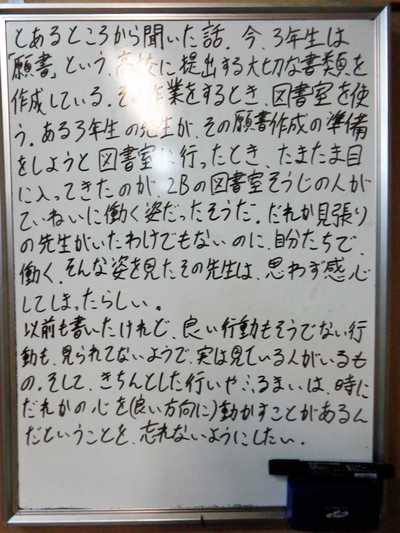 とあるところから聞いた話。今、3年生は
「願書」という、高校に提出する大切な書類を
作成している。その作業をするとき、図書室を使
う。ある3年生の先生が、その願書作成の準備
をしようと図書室に行ったとき、たまたま目
に入ってきたのが、2Bの図書室そうじの人が
ていねいに働く姿だったそうだ。だれか見張り
の先生がいたわけでもないのに、自分たちで
働く、そんな姿を見たその先生は、思わず感心
してしまったらしい。
以前も書いたけれど、良い行動もそうでない行
動も、見られてないようで、実は見ている人がいるも
の。そして、きちんとした行いやふるまいは、時に
だれかの心を(良い方向に)動かすことがあるん
だということを、忘れないようにしたい。